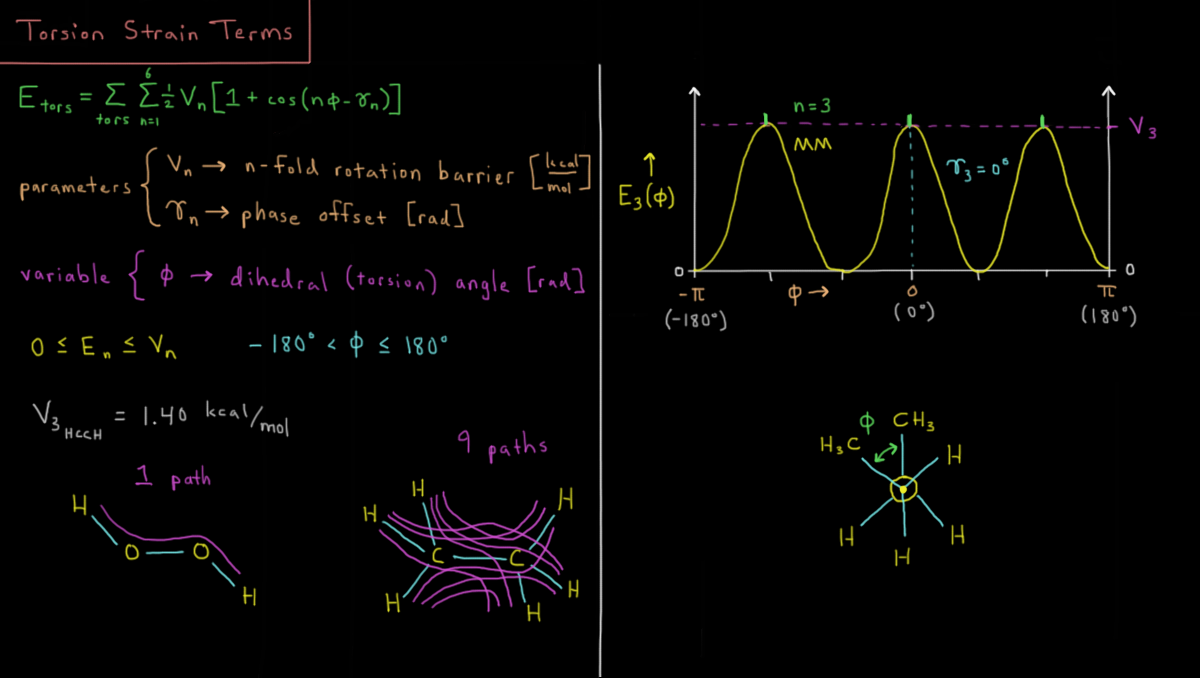 Torsion Strain Terms
E_tors = Σ_tors Σ_{n=1}^{6} ½ V_n [1 + cos(nφ - γ_n)]
parameters { V_n → n-fold rotation barrier [kcal/mol]
γ_n → phase offset [rad]
variable { φ → dihedral (torsion) angle [rad]
0 ≤ E_n ≤ V_n   -180° < φ ≤ 180°
V_3 HCCH = 1.40 kcal/mol
1 path
H
O — O
H
9 paths
H H H
C — C
H H H
n=3
V_3
MM
γ_3 = 0°
↑
E_3(φ)
0 0
-π φ → 0 π
(-180°) (0°) (180°)
φ CH₃
H₃C H
H H
H